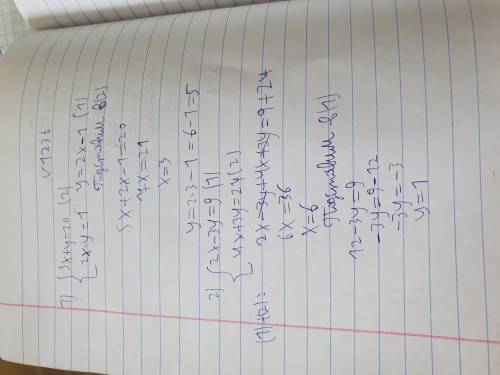 √1233
1) { 5x+y=20 (2)
2x-y=1 y=2x-1 (1)
Подставим в(2)
5x+2x-1=20
7x=21
x=3
y=2·3-1=6-1=5
2) { 2x-3y=9 (1)
4x+3y=27(2)
(1)+(2)= 2x-3y+4x+3y=9+27
6x=36
x=6
Подставим в(1)
12-3y=9
-3y=9-12
-3y=-3
y=1